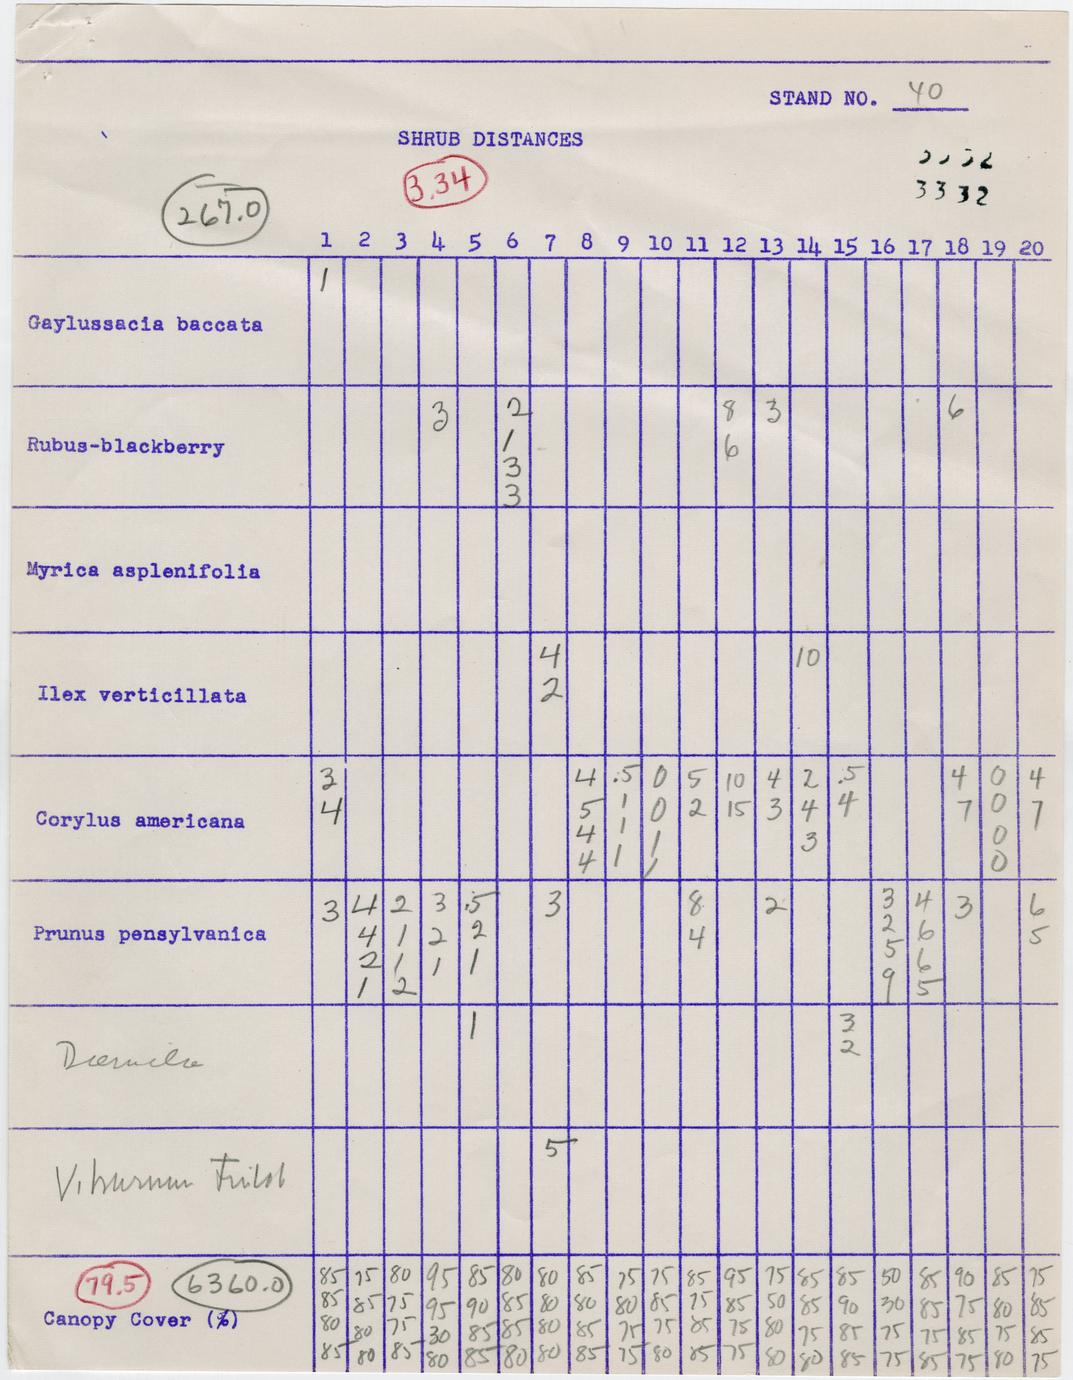 STAND NO. 40
SHRUB DISTANCES
3332
267.0 3.34
1 2 3 4 5 6 7 8 9 10 11 12 13 14 15 16 17 18 19 20
1
Gaylussacia baccata
3 2 8 3 6
Rubus-blackberry 1 6
3
3
Myrica asplenifolia
4 10
Ilex verticillata 2
3 4 .5 0 5 10 4 2 .5 4 0 4
Corylus americana 4 5 1 0 2 15 3 4 4 7 0 7
4 1 1 3 0
4 1 1 0
3 4 2 3 .5 3 8 2 3 4 3 6
Prunus pensylvanica 4 1 2 2 4 2 6 5
2 1 1 1 5 6
1 2 9 5
1 3
2
5
Viburnum Trilob
79.5 6360.0 85 75 80 95 85 80 80 85 75 75 85 95 75 85 85 50 85 90 85 75
85 85 75 95 90 85 80 80 80 85 75 85 50 85 90 30 85 75 80 85
Canopy Cover (%) 80 80 75 30 85 85 80 85 75 75 85 75 80 75 85 75 75 85 75 85
85 80 85 80 85 80 80 85 75 80 85 75 80 80 85 75 85 75 80 75